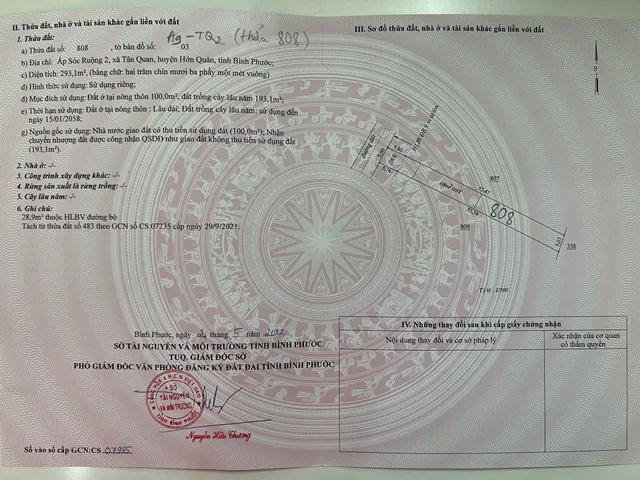 II. Thửa đất, nhà ở và tài sản khác gắn liền với đất
1. Thửa đất:
Ag-TQ2 (thửa 808)
a) Thửa đất số: 808 , tờ bản đồ số: 03
b) Địa chỉ: Ấp Sóc Ruộng 2, xã Tân Quan, huyện Hớn Quản, tỉnh Bình Phước,
c) Diện tích: 293,1m², (bằng chữ: hai trăm chín mươi ba phẩy một mét vuông)
d) Hình thức sử dụng: Sử dụng riêng;
đ) Mục đích sử dụng: Đất ở tại nông thôn 100,0m², đất trồng cây lâu năm 193,1m²;
e) Thời hạn sử dụng: Đất ở tại nông thôn : Lâu dài; Đất trồng cây lâu năm: sử dụng đến
ngày 15/01/2058;
g) Nguồn gốc sử dụng: Nhà nước giao đất có thu tiền sử dụng đất (100,0m²); Nhận
chuyển nhượng đất được công nhận QSDĐ như giao đất không thu tiền sử dụng đất
(193,1m²).
2. Nhà ở: -/-
3. Công trình xây dựng khác: -/-
4. Rừng sản xuất là rừng trồng: -/-
5. Cây lâu năm: -/-
6. Ghi chú:
28,9m² thuộc HLBV đường bộ
Tách từ thửa đất số 483 theo GCN số CS 07235 cấp ngày 29/9/2021.
Bình Phước, ngày 24 tháng 5 năm 2022
SỞ TÀI NGUYÊN VÀ MÔI TRƯỜNG TỈNH BÌNH PHƯỚC
TUQ. GIÁM ĐỐC SỞ
PHÓ GIÁM ĐỐC VĂN PHÒNG ĐĂNG KÝ ĐẤT ĐAI TỈNH BÌNH PHƯỚC
SỞ
TÀI NGUYÊN
VÀ MÔI TRƯỜNG
TỈNH BÌNH PHƯỚC
Nguyễn Hữu Thương
Số vào sổ cấp GCN:CS 07985
III. Sơ đồ thửa đất, nhà ở và tài sản khác gắn liền với đất
B
đường đất
807
808
809
338
Tỷ lệ : 1/500
IV. Những thay đổi sau khi cấp giấy chứng nhận
Nội dung thay đổi và cơ sở pháp lý
Xác nhận của cơ quan
có thẩm quyền